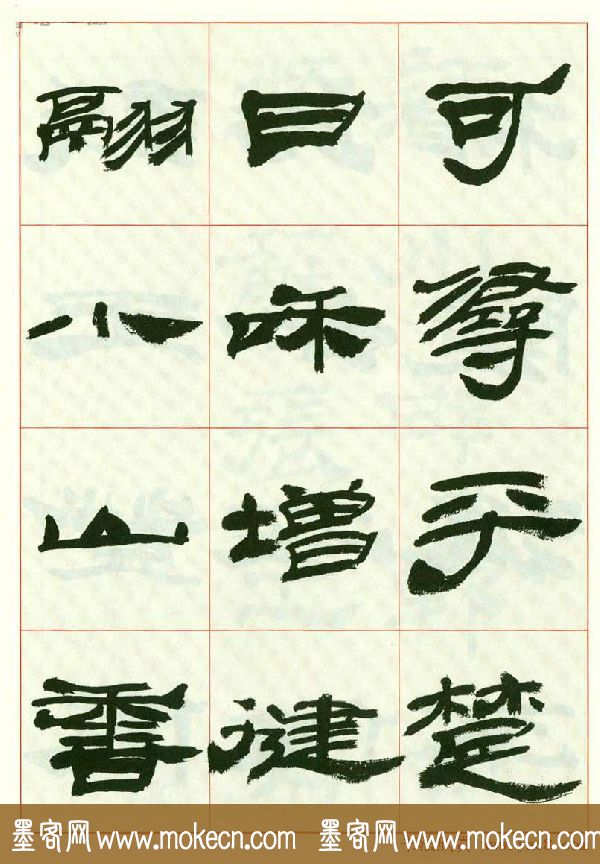 可尋乎楚
曰和增徤
翮小山
墨客网 www.mokecn.com 墨客网 www.mokecn.com